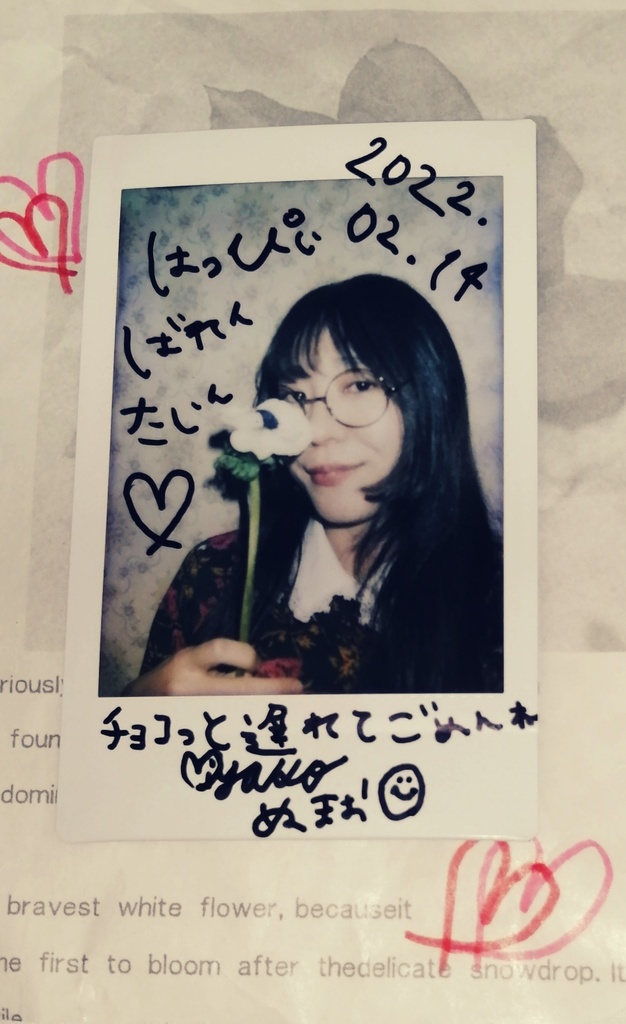 2022.
02.14
はっぴぃ
ばれん
たいん
チョコっと遅れてごめんね
riousl
foun
domi
bravest white flower, becauseit
he first to bloom after thedelicate snowdrop. It